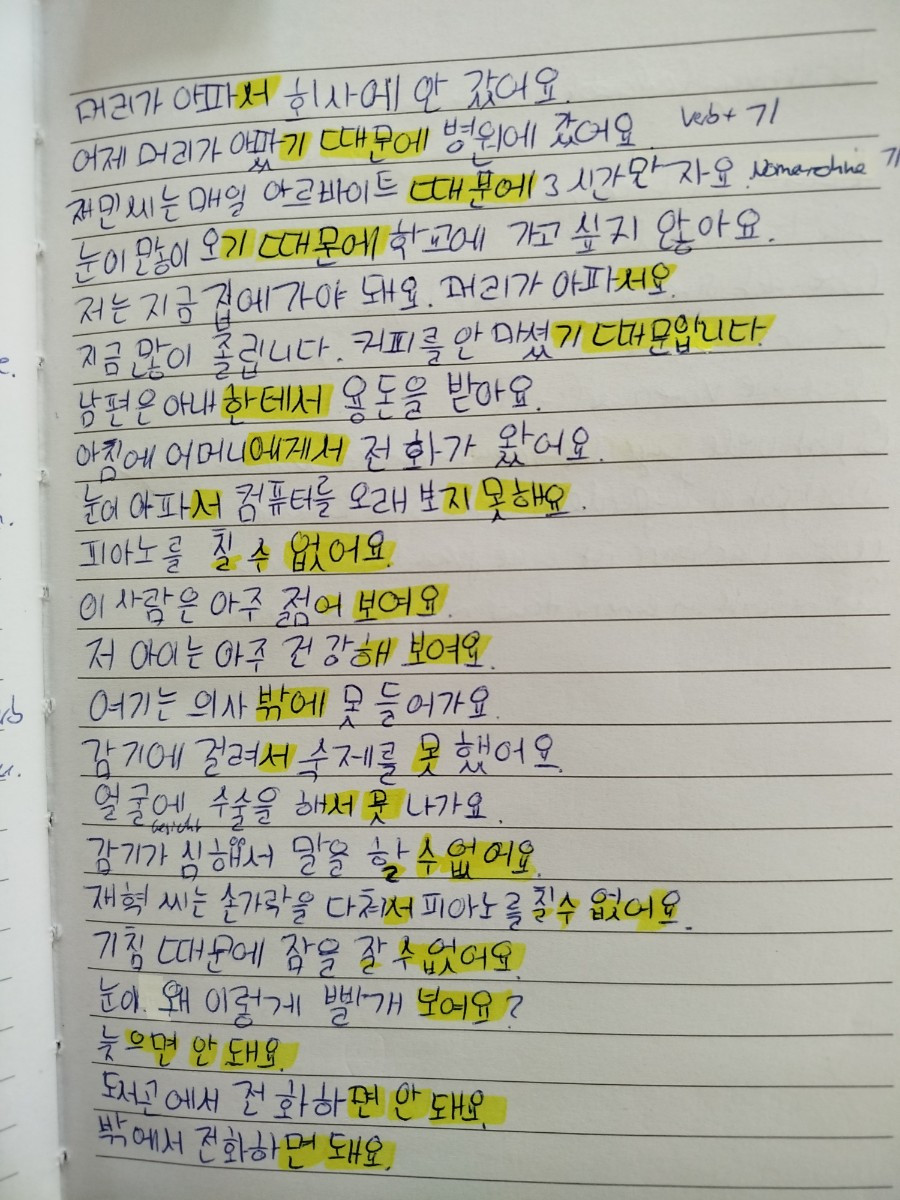 머리가 아파서 회사에 안 갔어요.
어제 머리가 아팠기 때문에 병원에 갔어요. Verb + 기
재민 씨는 매일 아르바이트 때문에 3시간만 자요. 기
눈이 많이 오기 때문에 학교에 가고 싶지 않아요.
저는 지금 집에 가야 돼요. 머리가 아파서요.
지금 많이 졸립니다. 커피를 안 마셨기 때문입니다.
남편은 아내한테서 용돈을 받아요.
아침에 어머니에게서 전화가 왔어요.
눈이 아파서 컴퓨터를 오래 보지 못해요.
피아노를 칠 수 없어요.
이 사람은 아주 젊어 보여요.
저 아이는 아주 건강해 보여요.
여기는 의사밖에 못 들어가요.
감기에 걸려서 숙제를 못 했어요.
얼굴에 수술을 해서 못 나가요.
Gesicht
감기가 심해서 말을 할 수 없어요.
재혁 씨는 손가락을 다쳐서 피아노를 칠 수 없어요.
기침 때문에 잠을 잘 수 없어요.
눈이 왜 이렇게 빨개 보여요?
늦으면 안 돼요.
에서 전화하면 안 돼요.
밖에서 전화하면 돼요.